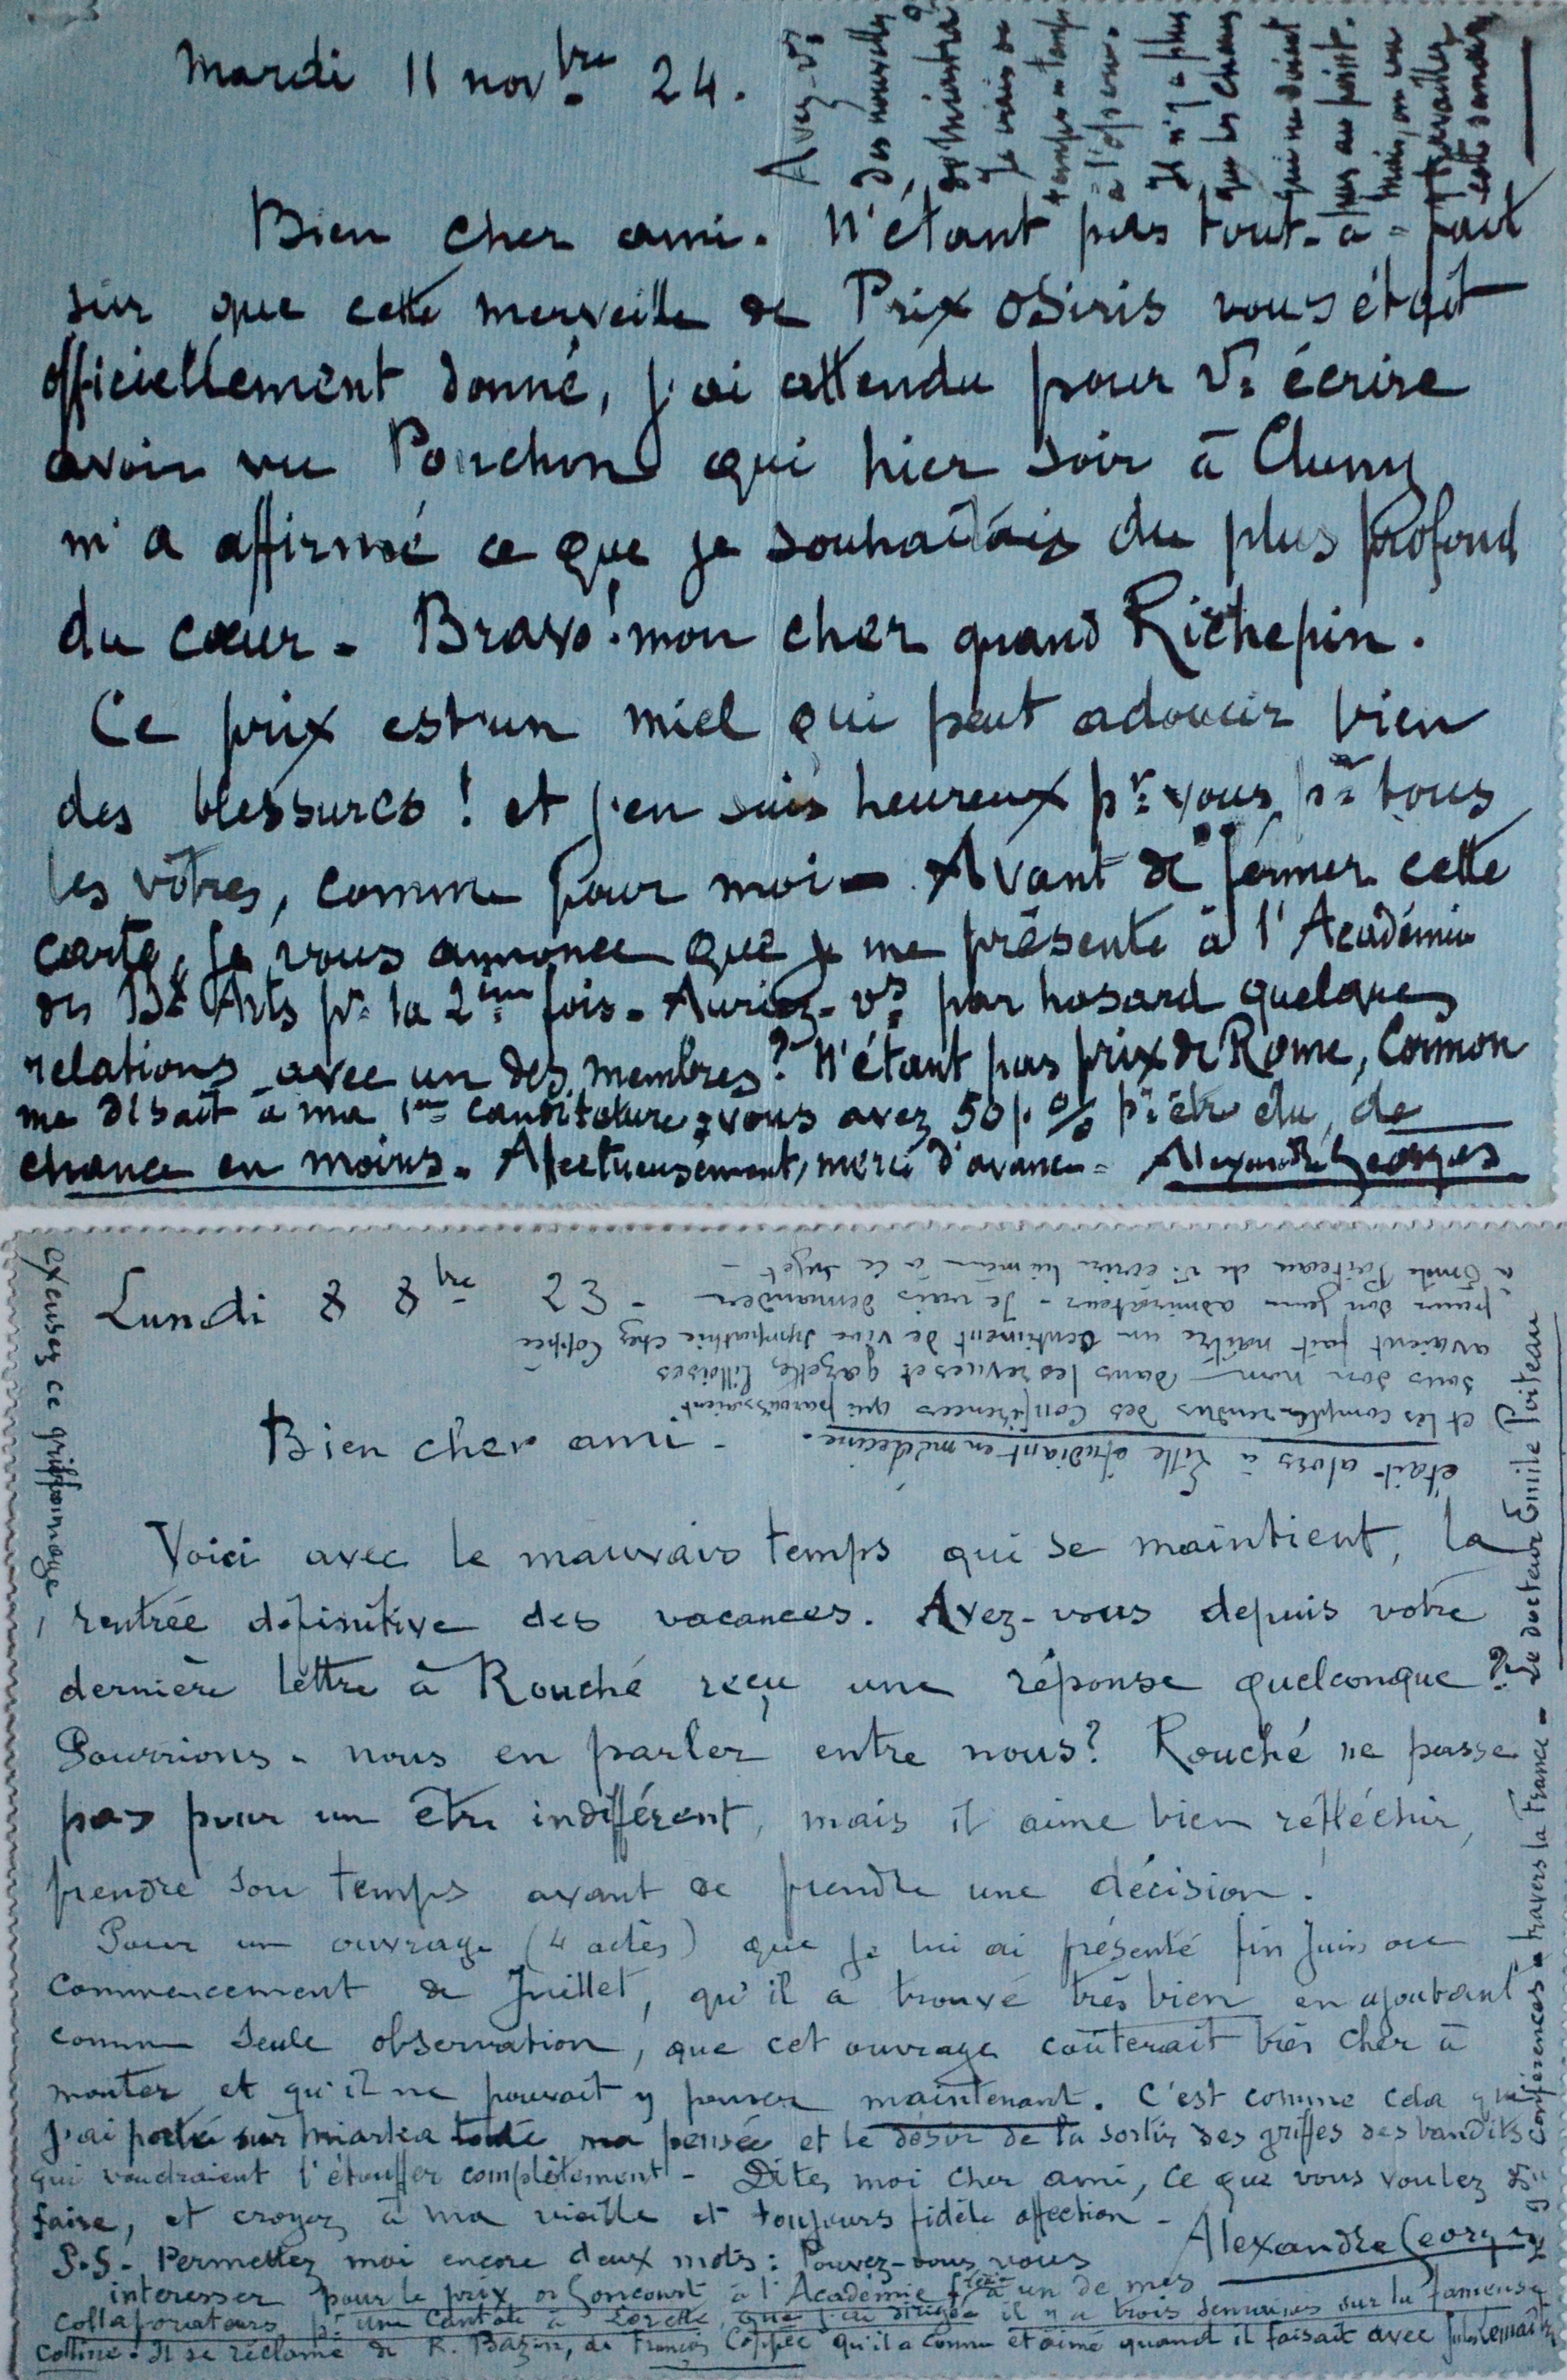 Mardi 11 novbre 24.
Bien cher ami. N'étant pas tout-à-fait
sûr que cette merveille de Prix Osiris vous était
officiellement donné, j'ai attendu pour vs écrire
avoir vu Ponchon qui hier soir à Cluny
m'a affirmé ce que je souhaitais du plus profond
du cœur - Bravo! mon cher grand Richepin.
Ce prix est un miel qui peut adoucir bien
des blessures ! et j'en suis heureux pr vous, pr tous
les vôtres, comme pour moi - Avant de fermer cette
carte, je vous annonce que je me présente à l'Académie
des Bx Arts pr la 2ème fois - Auriez-vs par hasard quelques
relations avec un des membres ? N'étant pas prix de Rome, Cormon
me disait à ma 1ère canditature : vous avez 50 p. % pr être élu, de
chance en moins. Afectueusement, merci d'avance - Alexandre Georges
Avez-vs
des nouvelles
de
Je vais de
temps en temps
à l'opéra.
Il n'y a plus
que les chœurs
qui ne soient
pas au point.
mais, on va
y travailler
cette semaine
Lundi 8 8bre 23 -
Bien cher ami -
Voici avec le mauvais temps qui se maintient, la
rentrée définitive des vacances. Avez-vous depuis votre
dernière lettre à Rouché reçu une réponse quelconque ?
Pourrions-nous en parler entre nous ? Rouché ne passe
pas pour un être indifférent, mais il aime bien réfléchir,
prendre son temps avant de prendre une décision.
Pour un ouvrage (4 actes) que je lui ai présenté fin Juin ou
commencement de Juillet, qu'il a trouvé très bien en ajoutant
comme seule observation, que cet ouvrage coûterait très cher à
monter et qu'il ne pouvait y penser maintenant. C'est comme cela que
j'ai porté sur Miarka toute ma pensée et le désir de la sortir des griffes des bandits
qui voudraient l'étouffer complètement - Dites moi cher ami, ce que vous voulez
faire, et croyez à ma vieille et toujours fidèle affection -
Alexandre Georges
P.S. - Permettez moi encore deux mots : Pouvez-vous vous
interesser pour le prix de Goncourt à l'Académie à un de mes
collaborateurs pr une Cantate à Lorette que j'ai dirigée il y a trois semaines sur la fameuse
colline. Il se réclame de R. Bazin, de François Coppée qu'il a connu et aimé quand il faisait avec Jules Lemaître
conférences à travers la France - Le docteur Emile Poiteau
était alors à Lille étudiant en médecine.
et les comptes rendus des conférences qui paraissaient
sous son nom dans les revues et gazettes lilloises
avaient fait naître un sentiment de vive sympathie chez Coppée
pour son jeune admirateur - Je vais demander
à Emile Poiteau de vs écrire lui même à ce sujet -
excusez ce griffonnage